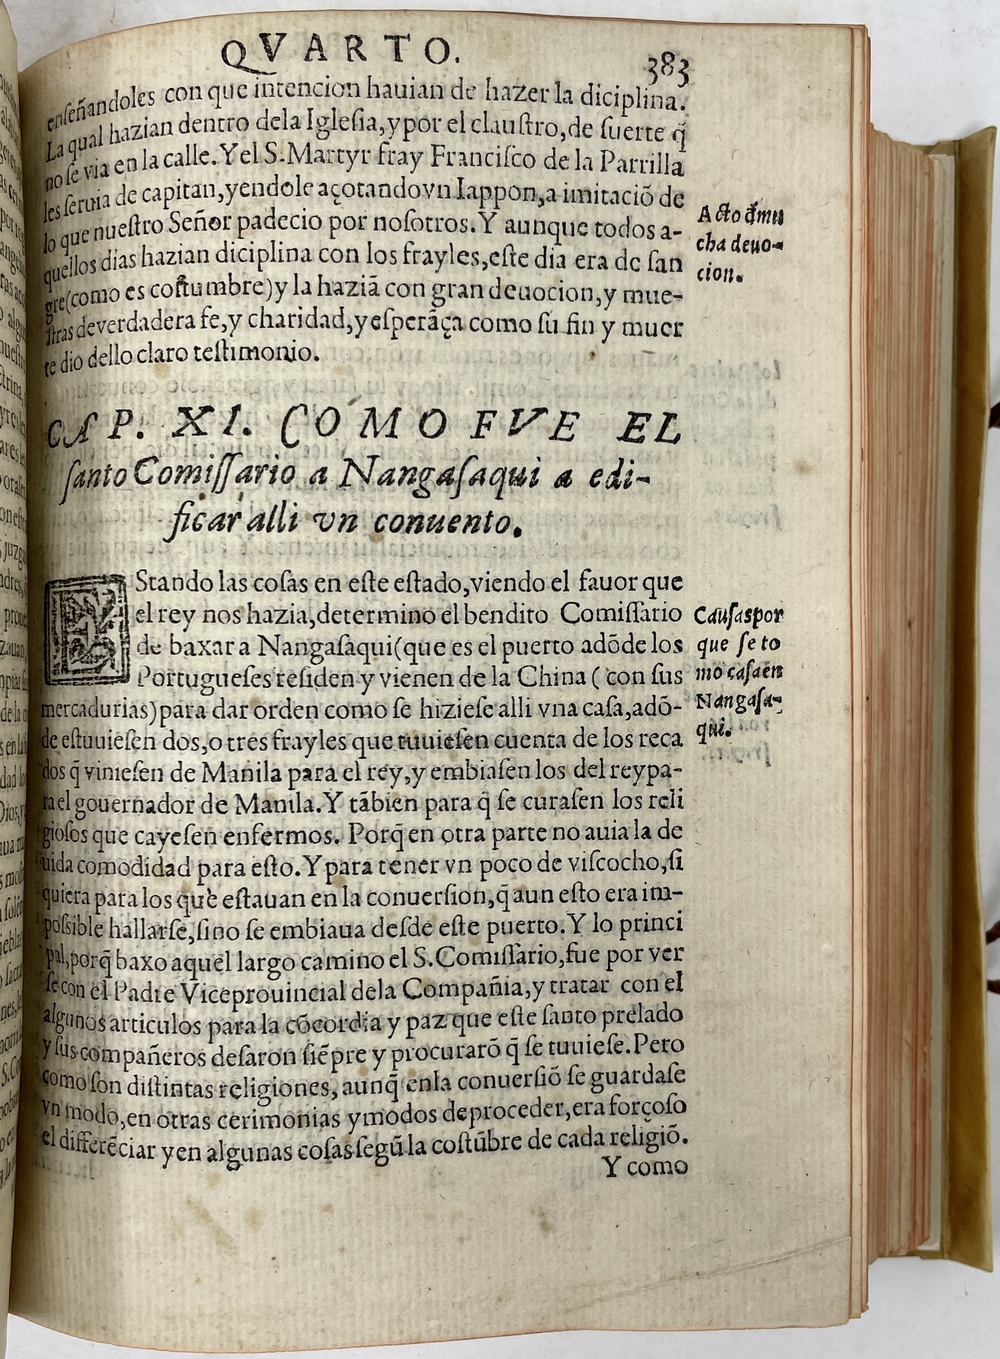 QVARTO.
383
enſeñandoles con que intencion hauian de hazer la diciplina.
La qual hazian dentro dela Igleſia,y por el clauſtro,de ſuerte q̃
no ſe via en la calle. Y el S. Martyr fray Franciſco de la Parrilla
les ſeruia de capitan,yendole açotando vn Iappon,a imitaciõ de
lo que nueſtro Señor padecio por noſotros. Y aunque todos a-
quellos dias hazian diciplina con los frayles,eſte dia era de ſan
gre(como es coſtumbre)y la haziã con gran deuocion,y mue-
ſtras de verdadera fe,y charidad,y eſperãça como ſu fin y muer
te dio dello claro teſtimonio.
Acto đ mu
cha deuo-
cion.
CAP. XI. COMO FVE EL
ſanto Comiſſario a Nangaſaqui a edi-
ficar alli vn conuento.
EStando las coſas en eſte eſtado,viendo el fauor que
el rey nos hazia,determino el bendito Comiſſario
de baxar a Nangaſaqui(que es el puerto adõde los
Portugueſes reſiden y vienen de la China ( con ſus
mercadurias)para dar orden como ſe hizieſe alli vna caſa,adõ-
de eſtuuieſen dos,o tres frayles que tuuieſen cuenta de los reca
dos q̃ vinieſen de Manila para el rey,y embiaſen los del rey pa-
ra el gouernador de Manila. Y tãbien para q̃ ſe curaſen los reli
gioſos que cayeſen enfermos. Porq̃ en otra parte no auia la de
uida comodidad para eſto. Y para tener vn poco de viſcocho,ſi
quiera para los que eſtauan en la conuerſion,q̃ aun eſto era im-
poſsible hallarſe,ſino ſe embiaua deſde eſte puerto. Y lo princi
pal,porq̃ baxo aquel largo camino el S. Comiſſario,fue por ver
ſe con el Padre Viceprouincial dela Compañia,y tratar con el
algunos articulos para la cõcordia y paz que eſte ſanto prelado
y ſus compañeros deſaron ſiẽpre y procurarõ q̃ ſe tuuieſe. Pero
como ſon diſtintas religiones, aunq̃ enla conuerſiõ ſe guardaſe
vn modo,en otras cerimonias y modos de proceder,era forçoſo
el differẽciar y en algunas coſas ſegũ la coſtũbre de cada religiõ.
Cauſas por
que ſe to
mo caſa en
Nangaſa-
qui.
Y como